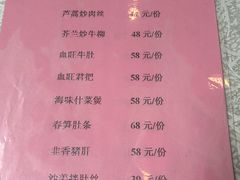 芦蒿炒肉丝 元/份
芥兰炒牛柳 48 元/份
血旺牛肚 58 元/份
血旺君把 58 元/份
海味什菜煲 58 元/份
春笋肚条 68 元/份
韭香猪肝 58 元/份
肚丝 元/份